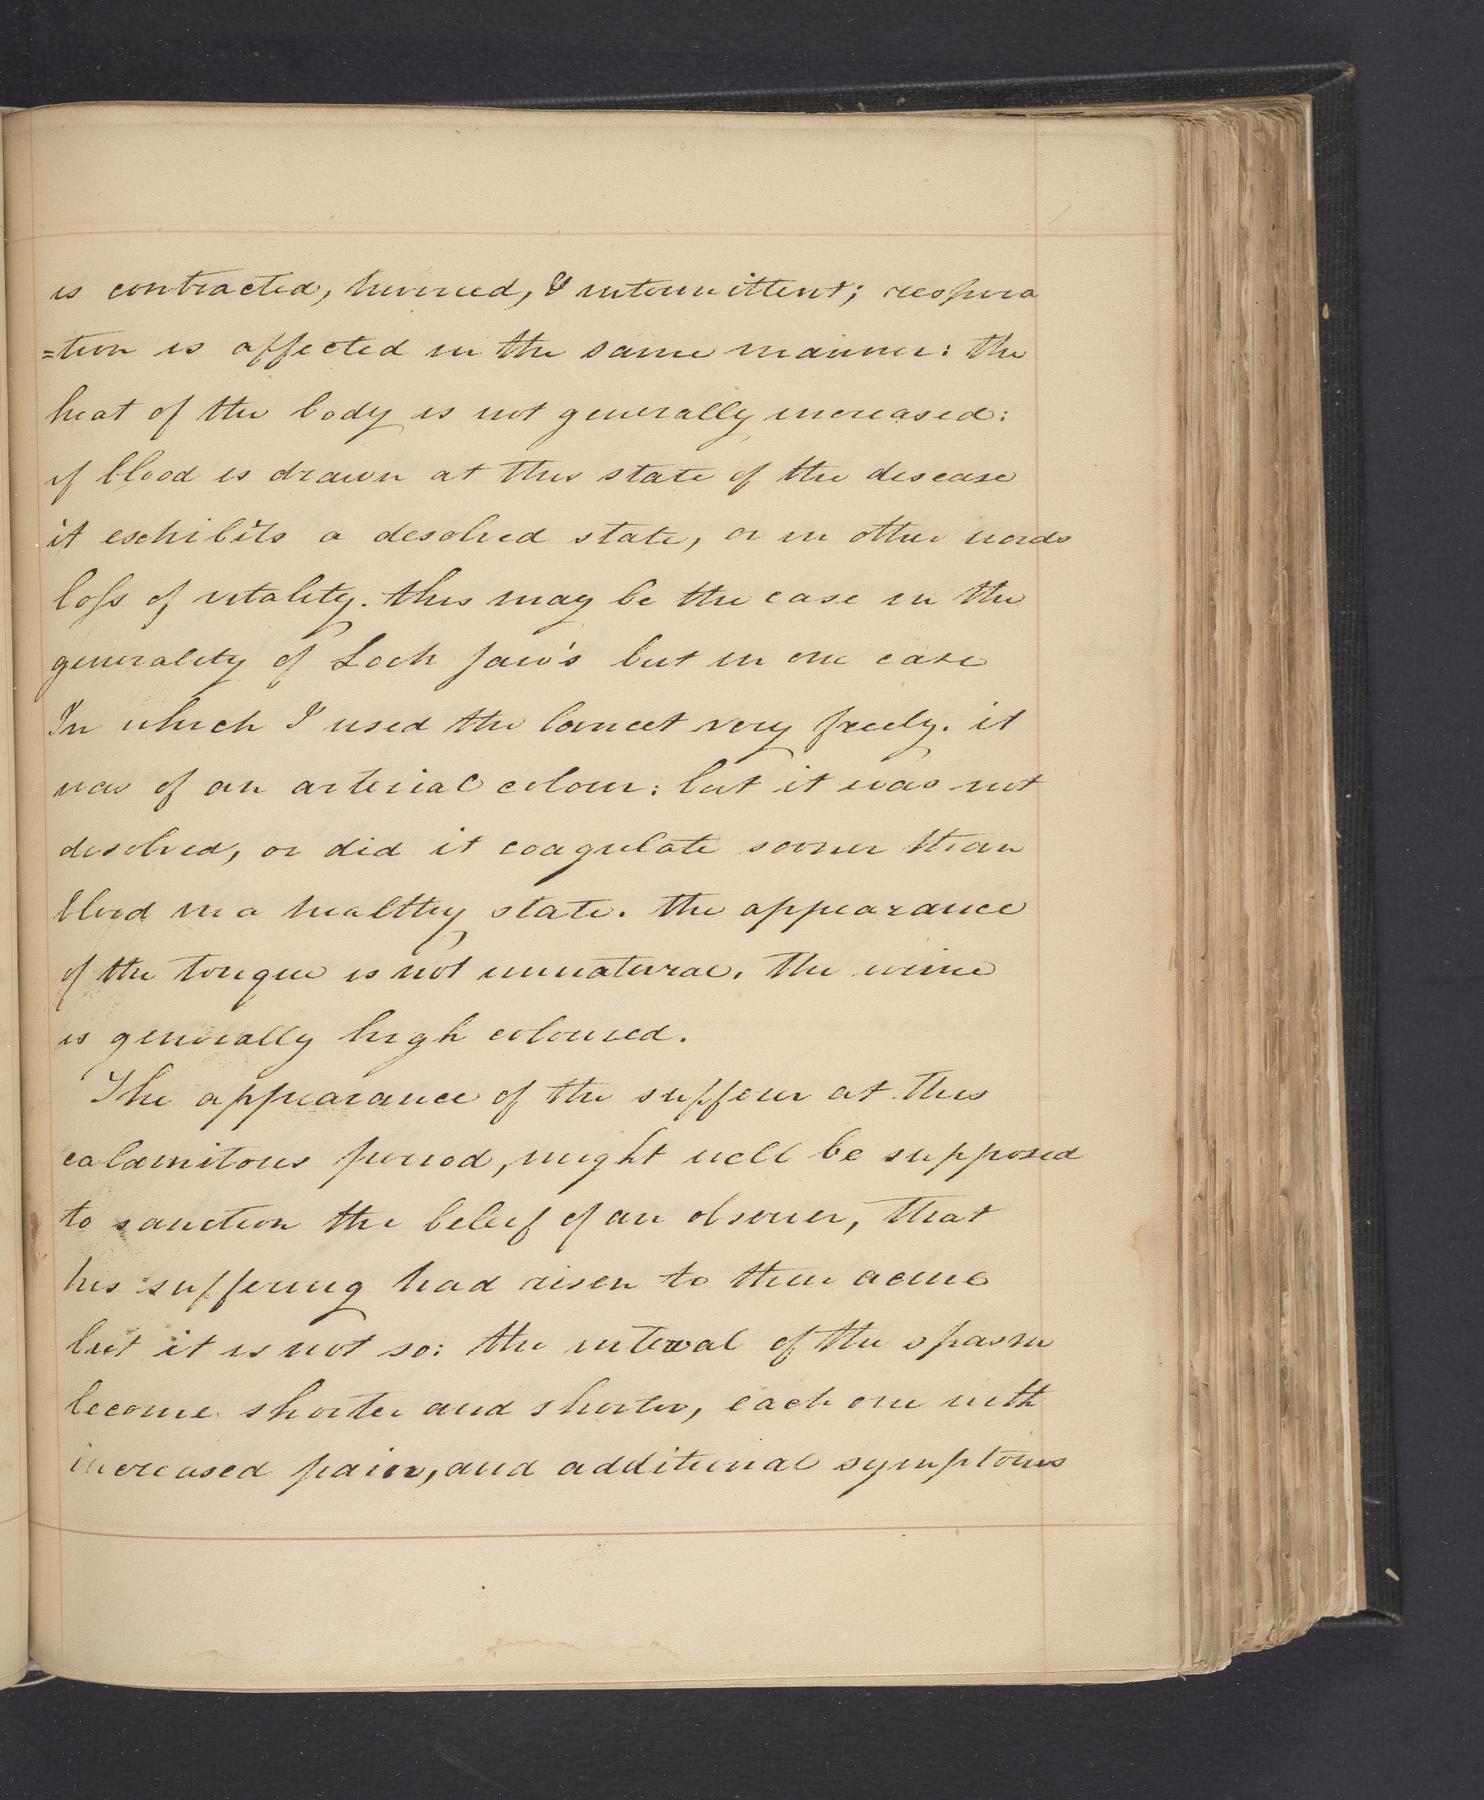 is contracted, hurried, & intermittent; respira
=tion is affected in the same manner: the
heat of the body is not generally increased:
if blood is drawn at this state of the disease
it exhibits a desolved state, or in other words
loss of vitality. this may be the case in the
generality of Lock Jaw's but in one case
In which I used the lancet very freely. it
was of an arterial colour: but it was not
desolved, or did it coagulate sooner than
blood in a healthy state. the appearance
of the tongue is not unnatural. The urine
is generally high coloured.
The appearance of the sufferer at this
calamitous period, might well be supposed
to sanction the beleif of an observer, that
his suffering had risen to their acme
but it is not so: the interval of the spasm
become shorter and shorter, each one with
increased pain, and additional symptoms